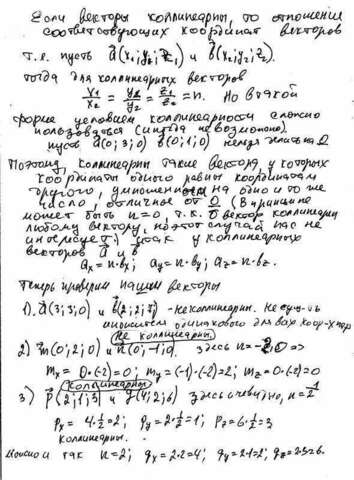 Если векторы коллинеарны, то отношение
соответствующих координат векторов
т.е. пусть a⃗(x₁;y₁;z₁) и b⃗(x₂;y₂;z₂).
тогда для коллинеарных векторов
x₁/x₂ = y₁/y₂ = z₁/z₂ = n. Но в такой
форме условием коллинеарности сложно
пользоваться (иногда невозможно).
пусть a(0;3;0) b⃗(0;1;0) нельзя делить на 0
Поэтому, коллинеарны такие вектора, у которых
координаты одного равны координатам
другого, умноженным на одно и то же
число, отличное от 0 (В принципе
может быть n=0, т.к. 0⃗ вектор коллинеарен
любому вектору, но этот случай нас не
интересует.) итак у коллинеарных
векторов a⃗ и b⃗
aₓ=n·bₓ; aᵧ=n·bᵧ; a_z=n·b_z.
Теперь проверим наши векторы
1). a⃗(3;3;0) и b⃗(2;2;1) - не коллинеарны. Не сущ-ет
множителя одинакового для всех коор-т
не коллинеарны.
2) m⃗(0;2;0) и n⃗(0;-1;0) здесь n=-2 =>
mₓ = 0·(-2)=0; mᵧ=(-1)·(-2)=2; m_z=0·(-2)=0
коллинеарны
3) p⃗(2;1;3) и q⃗(4;2;6) здесь очевидно, n=1/2
pₓ = 4·1/2=2; pᵧ=2·1/2=1; p_z=6·1/2=3
коллинеарны.
Можно и так n=2; qₓ=2·2=4; qᵧ=2·1=2; q_z=2·3=6.